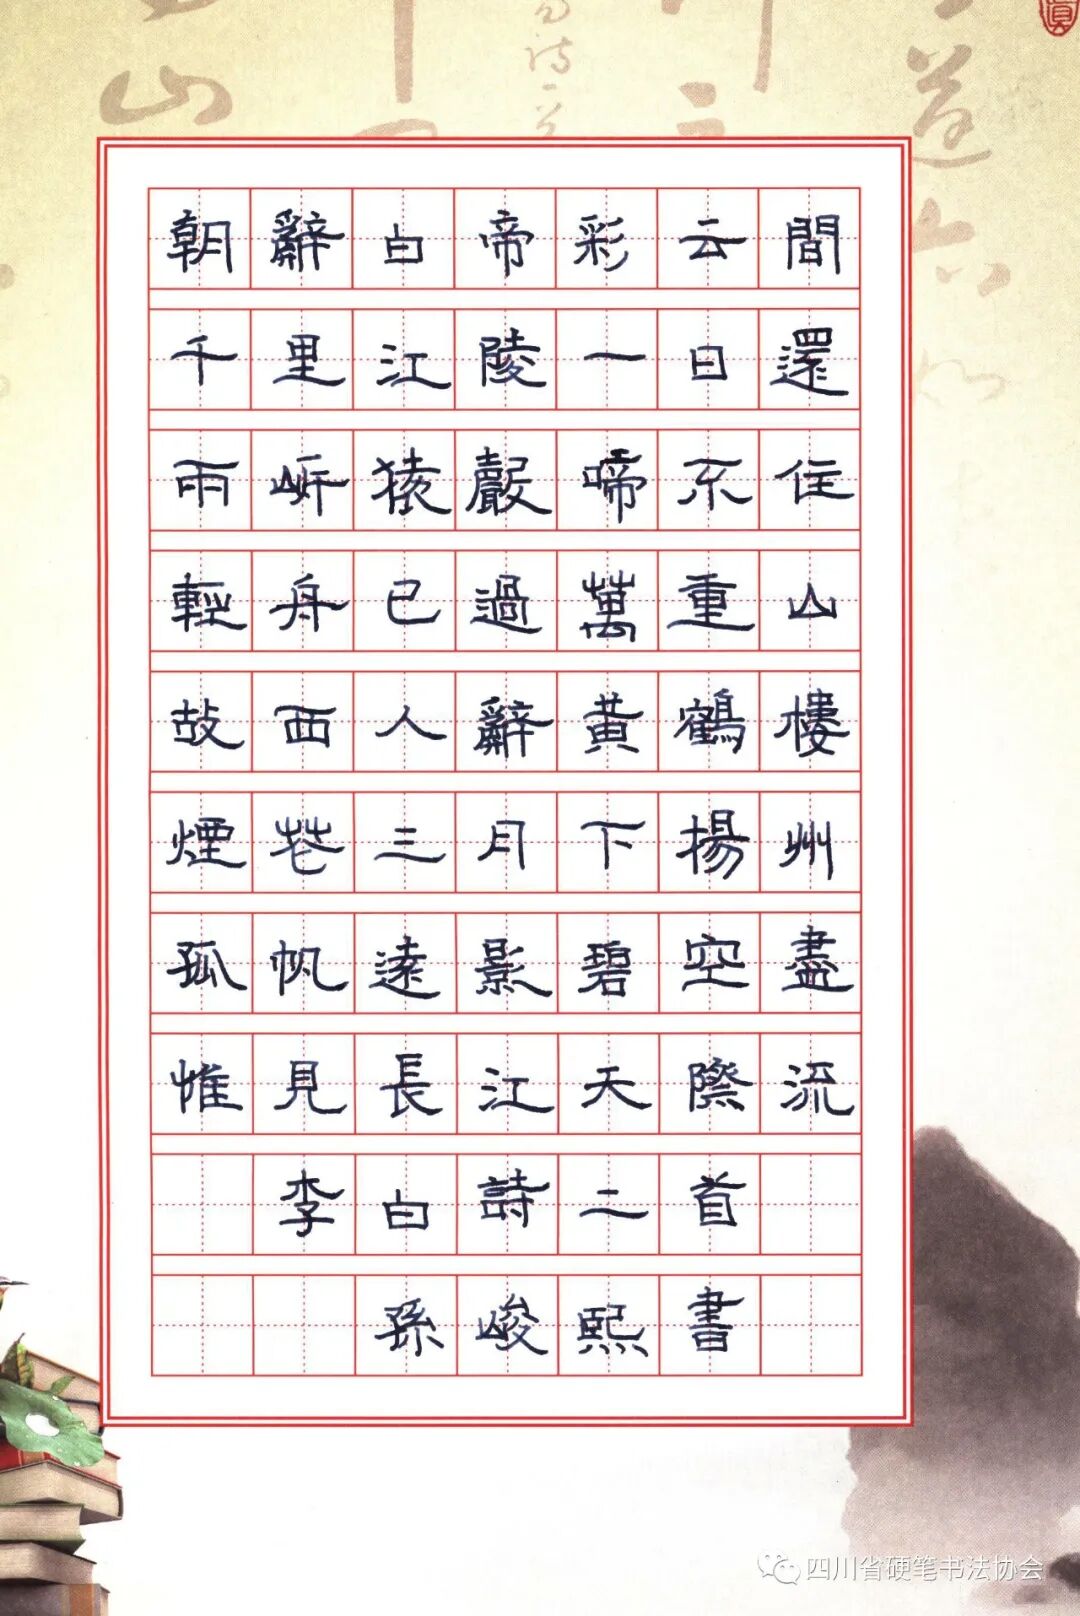 朝辭白帝彩云間
千里江陵一日還
兩岸猿聲啼不住
輕舟已過萬重山
故西人辭黃鶴樓
煙花三月下揚州
孤帆遠影碧空盡
惟見長江天際流
李白詩二首
孫峻熙書
四川省硬笔书法协会